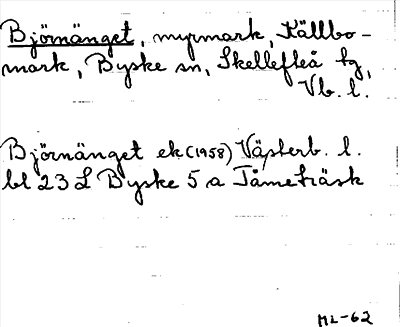 Björnänget, myrmark, Källbo-
mark, Byske sn, Skellefteå tg,
Vb. l.
Björnänget ek (1958) Västerb. l.
bl 23 L Byske 5 a Tåmeträsk
ML-62